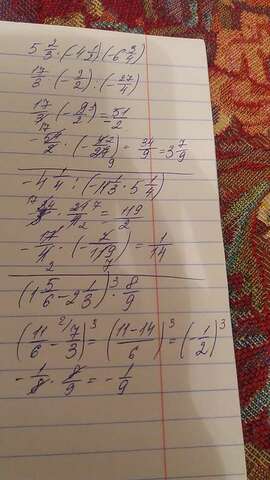 5 2/3 · (-4 1/2) : (-6 3/4)
17/3 · (-9/2) : (-27/4)
17/3 · (-9/2) = 51/2
-51/2 · (-4/27) = 34/9 = 3 7/9
-4 1/4 : (-11 1/3 · 5 1/4)
34/3 · 21/4 = 119/2
-17/4 · (-2/119) = 1/14
(1 5/6 - 2 1/3)³ · 8/9
(11/6 - 2/7/3)³ = (11-14/6)³ = (-1/2)³
-1/8 · 8/9 = -1/9